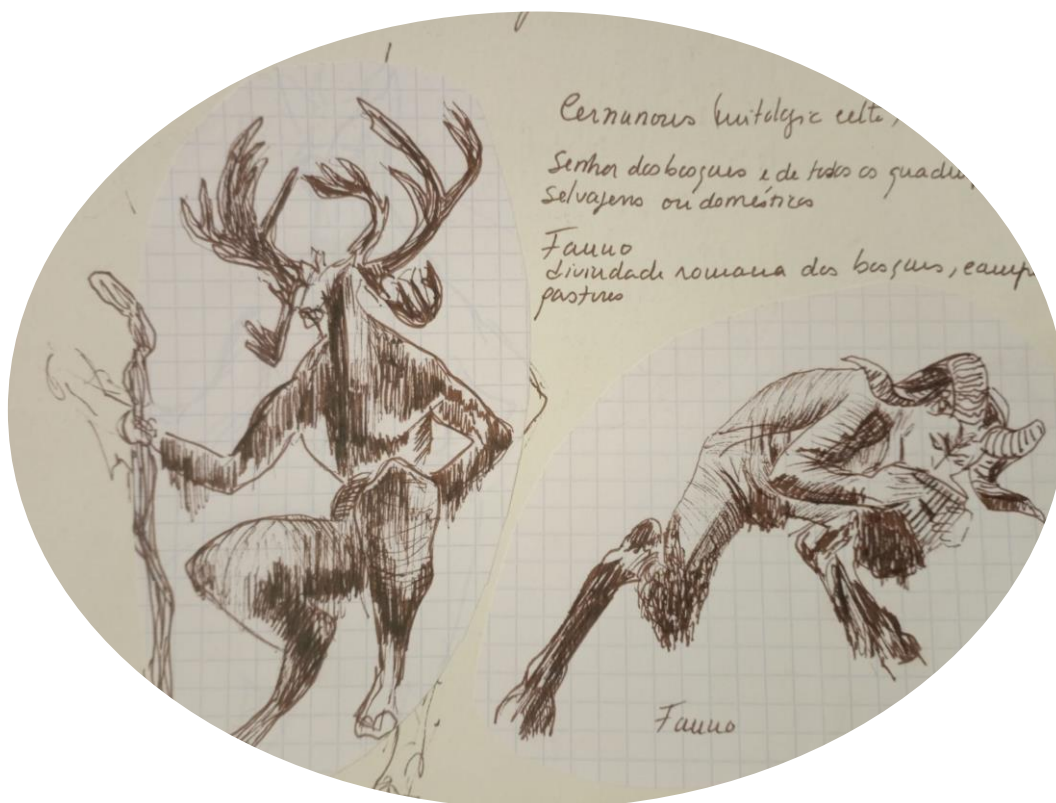 Cernunous (mitologia celta,
Senhor dos bosques e de todos os
selvagens ou domésticos
Fauno
divindade romana dos bosques,
pastores
Fauno